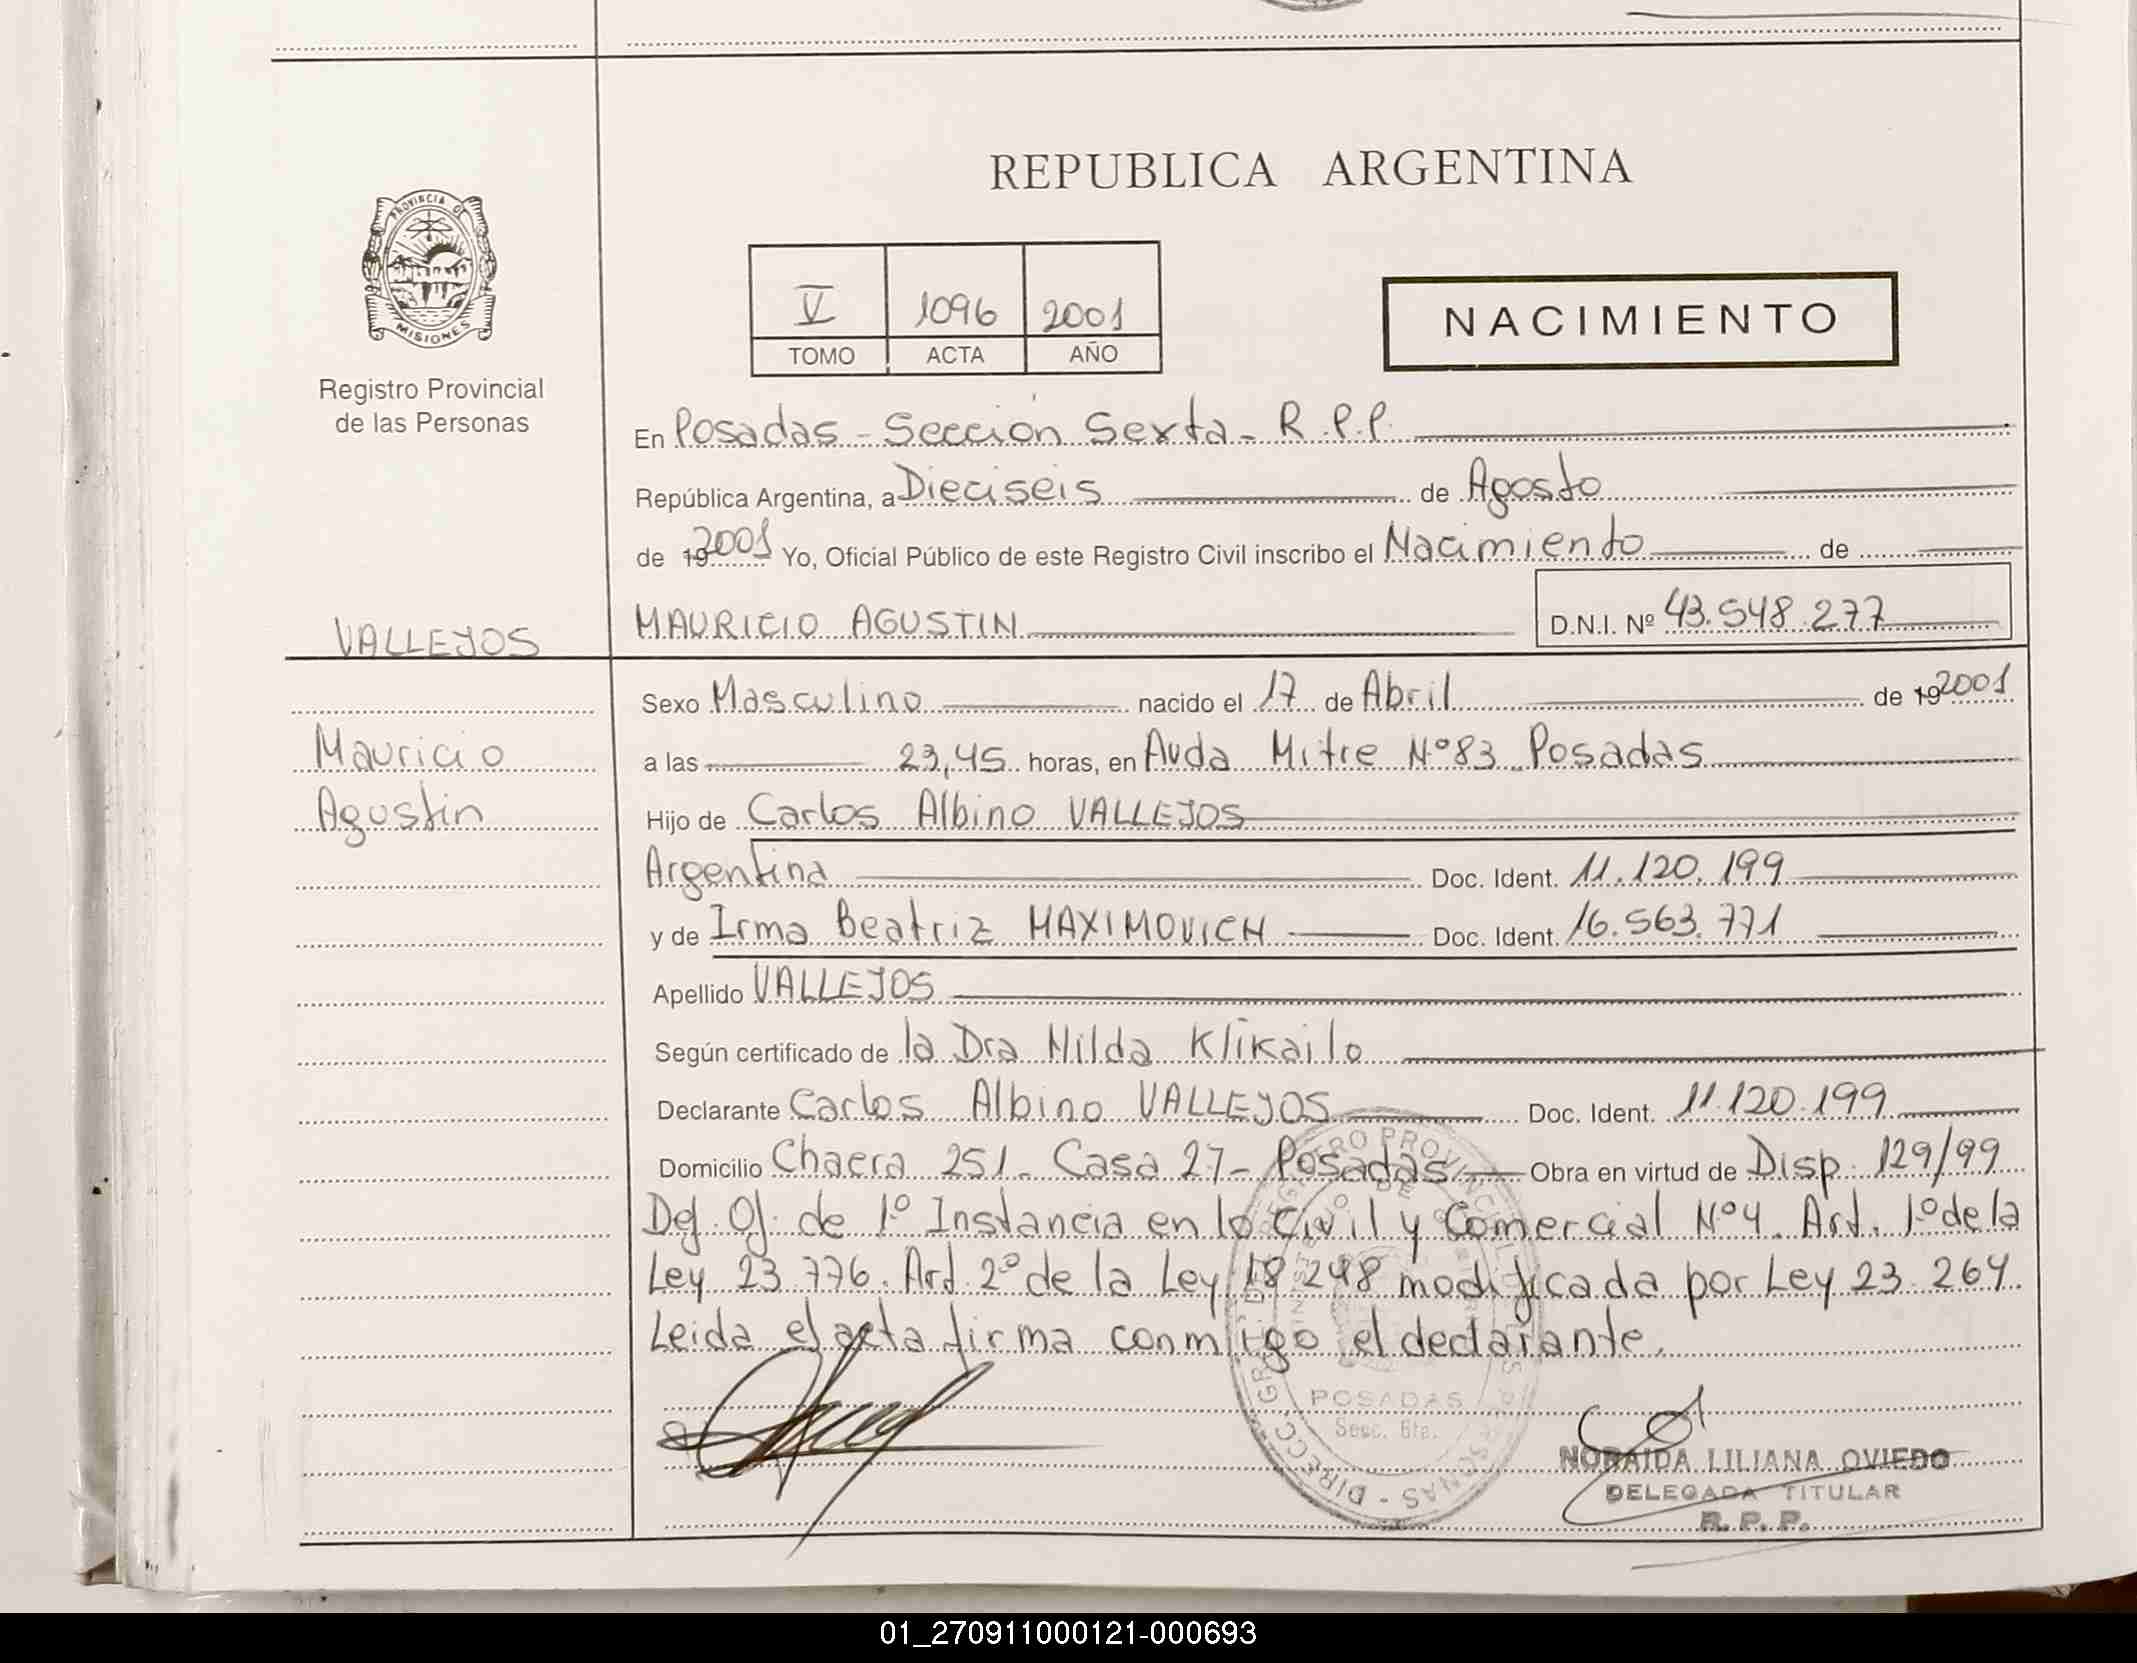 REPUBLICA ARGENTINA
PROVINCIA DE
MISIONES
Registro Provincial
de las Personas
V 1096 2001
TOMO ACTA AÑO
NACIMIENTO
En Posadas - Sección Sexta - R.P.P.
República Argentina, a Dieciseis de Agosto
de 19 2001 Yo, Oficial Público de este Registro Civil inscribo el Nacimiento de
VALLEJOS
MAURICIO AGUSTIN D.N.I. Nº 43.548.277
Sexo Masculino nacido el 17 de Abril de 19 2001
Mauricio
a las 23,45 horas, en Avda Mitre Nº 83 Posadas
Agustin
Hijo de Carlos Albino VALLEJOS
Argentina Doc. Ident. 11.120.199
y de Irma Beatriz MAXIMOVICH Doc. Ident. 16.563.771
Apellido VALLEJOS
Según certificado de la Dra Nilda Klikailo
Declarante Carlos Albino VALLEJOS Doc. Ident. 11.120.199
Domicilio Chacra 251 - Casa 27 - Posadas Obra en virtud de Disp. 129/99
Def. Of. de 1º Instancia en lo Civil y Comercial Nº 4. Art. 1º de la
Ley 23.776. Art. 2º de la Ley 18.248 modificada por Ley 23.264.
Leida el acta firma conmigo el declarante.
POSADAS
Secc. 6ta.
NORAIDA LILIANA OVIEDO
DELEGADA TITULAR
R.P.P.
01_270911000121-000693